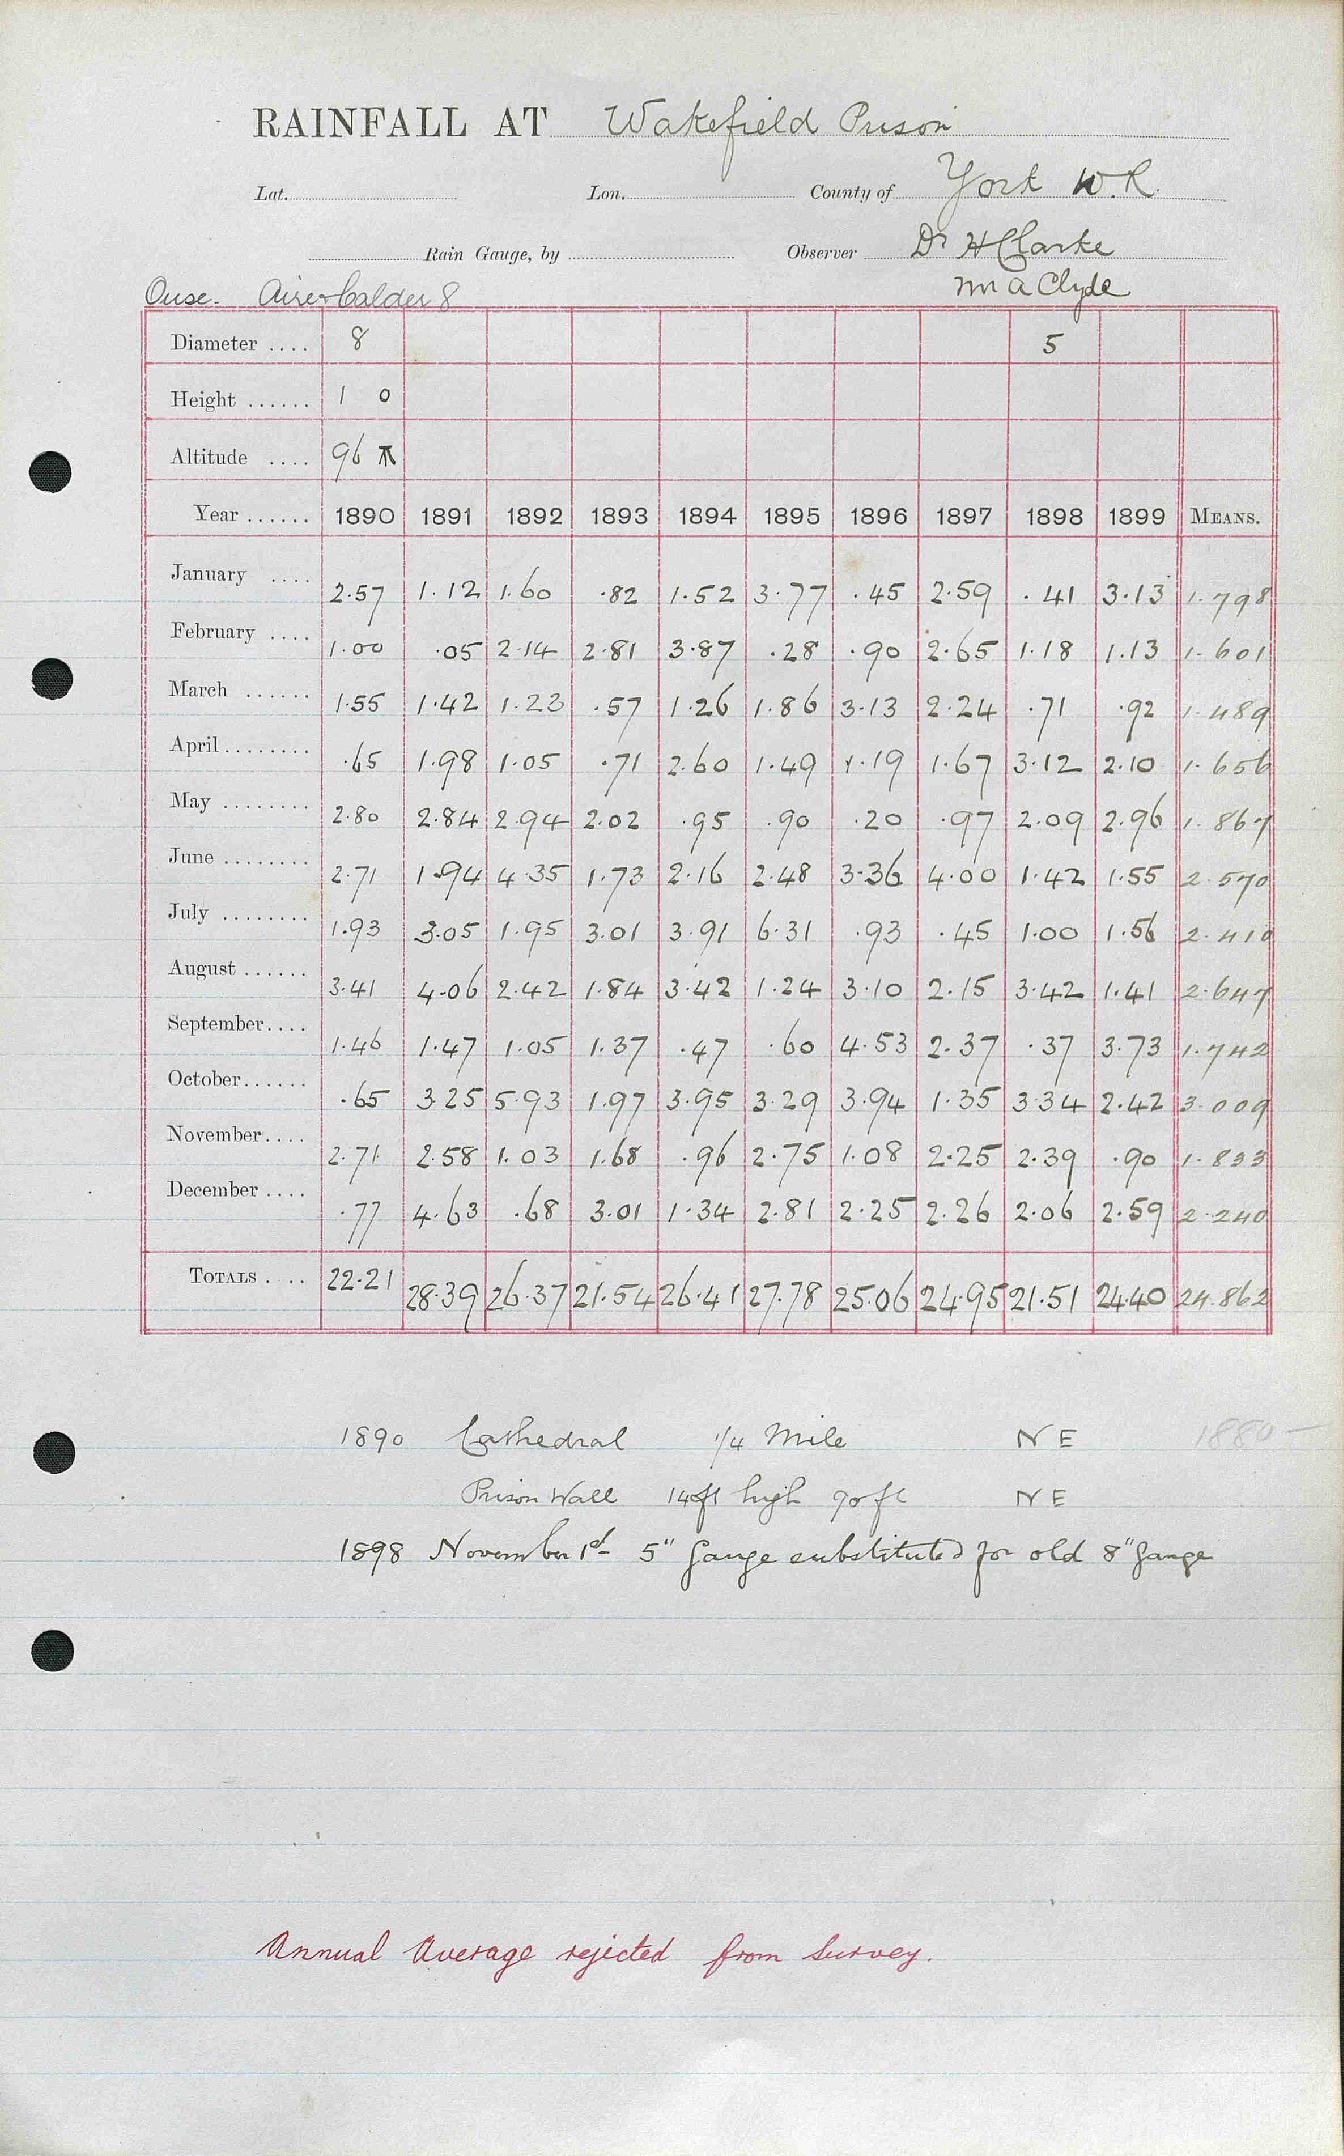 RAINFALL AT Wakefield Prison
Lat. Lon. County of York W.R.
Rain Gauge, by Observer Dr H Clarke
Mr A Clyde
Ouse. Aire & Calder 8
Diameter .... 8 5
Height ...... 1 0
Altitude .... 96
Year ...... 1890 1891 1892 1893 1894 1895 1896 1897 1898 1899 MEANS.
January .... 2.57 1.12 1.60 .82 1.52 3.77 .45 2.59 .41 3.13 1.798
February .... 1.00 .05 2.14 2.81 3.87 .28 .90 2.65 1.18 1.13 1.601
March ...... 1.55 1.42 1.23 .57 1.26 1.86 3.13 2.24 .71 .92 1.489
April ........ .65 1.98 1.05 .71 2.60 1.49 1.19 1.67 3.12 2.10 1.656
May ........ 2.80 2.84 2.94 2.02 .95 .90 .20 .97 2.09 2.96 1.867
June ........ 2.71 1.94 4.35 1.73 2.16 2.48 3.36 4.00 1.42 1.55 2.570
July ........ 1.93 3.05 1.95 3.01 3.91 6.31 .93 .45 1.00 1.56 2.410
August ...... 3.41 4.06 2.42 1.84 3.42 1.24 3.10 2.15 3.42 1.41 2.647
September.... 1.46 1.47 1.05 1.37 .47 .60 4.53 2.37 .37 3.73 1.742
October...... .65 3.25 5.93 1.97 3.95 3.29 3.94 1.35 3.34 2.42 3.009
November.... 2.71 2.58 1.03 1.68 .96 2.75 1.08 2.25 2.39 .90 1.833
December .... .77 4.63 .68 3.01 1.34 2.81 2.25 2.26 2.06 2.59 2.240
TOTALS .... 22.21 28.39 26.37 21.54 26.41 27.78 25.06 24.95 21.51 24.40 24.862
1890 Cathedral 1/4 Mile NE 1880-
Prison Wall 14ft high 90 ft NE
1898 November 1st 5" Gauge substituted for old 8" gauge
Annual Average rejected from Survey.